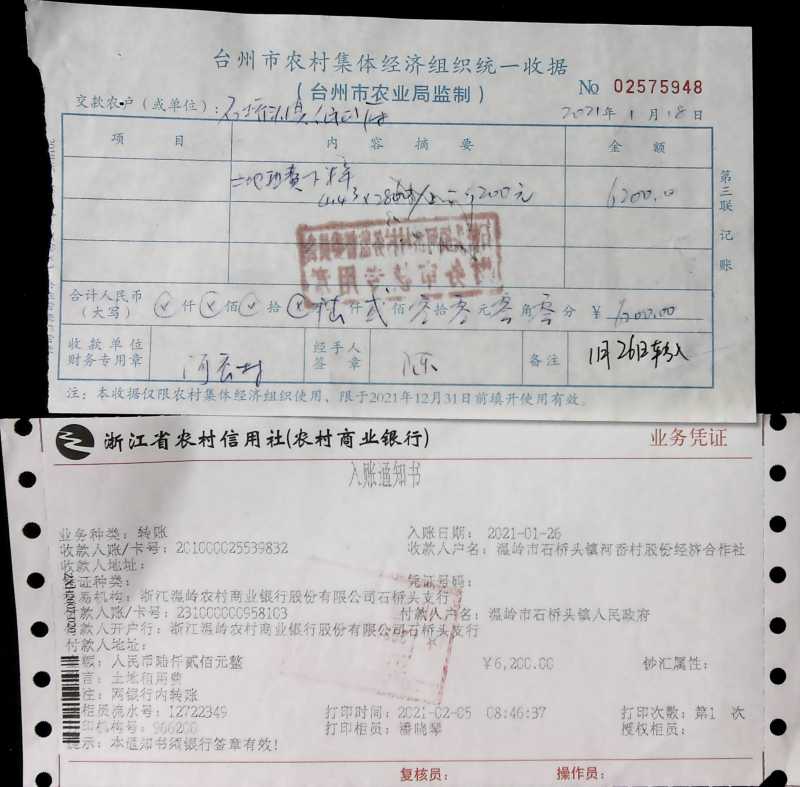 台州市农村集体经济组织统一收据
（台州市农业局监制）
No 02575948
交款农户（或单位）：石桥头镇人民政府
2021年1月18日
项目 内容摘要 金额
土地租费下粱
443×28 6200元 6200.00
第三联 记账
合计人民币（大写） 仟 佰 拾 陆仟 贰佰 零拾 零元 零角 零分 ¥ 6200.00
收款单位财务专用章 河岙村 经手人签章 陈 备注 1月26日转入
注：本收据仅限农村集体经济组织使用、限于2021年12月31日前填开使用有效。
浙江省农村信用社(农村商业银行) 业务凭证
入账通知书
业务种类：转账 入账日期：2021-01-26
收款人账/卡号：201000025539832 收款人户名：温岭市石桥头镇河岙村股份经济合作社
收款人地址：
凭证种类： 凭证号码：
易机构：浙江温岭农村商业银行股份有限公司石桥头支行
付款人账/卡号：231000000958103 付款人户名：温岭市石桥头镇人民政府
付款人开户行：浙江温岭农村商业银行股份有限公司石桥头支行
付款人地址：
额：人民币陆仟贰佰元整 ¥6,200.00 钞汇属性：
言：土地租用费
注：网银行内转账
柜员流水号：12722349 打印时间：2021-02-05 08:46:37 打印次数：第1 次
印机构号：966200 打印柜员：潘晓琴 授权柜员：
提示：本通知书须银行签章有效！
复核员： 操作员：